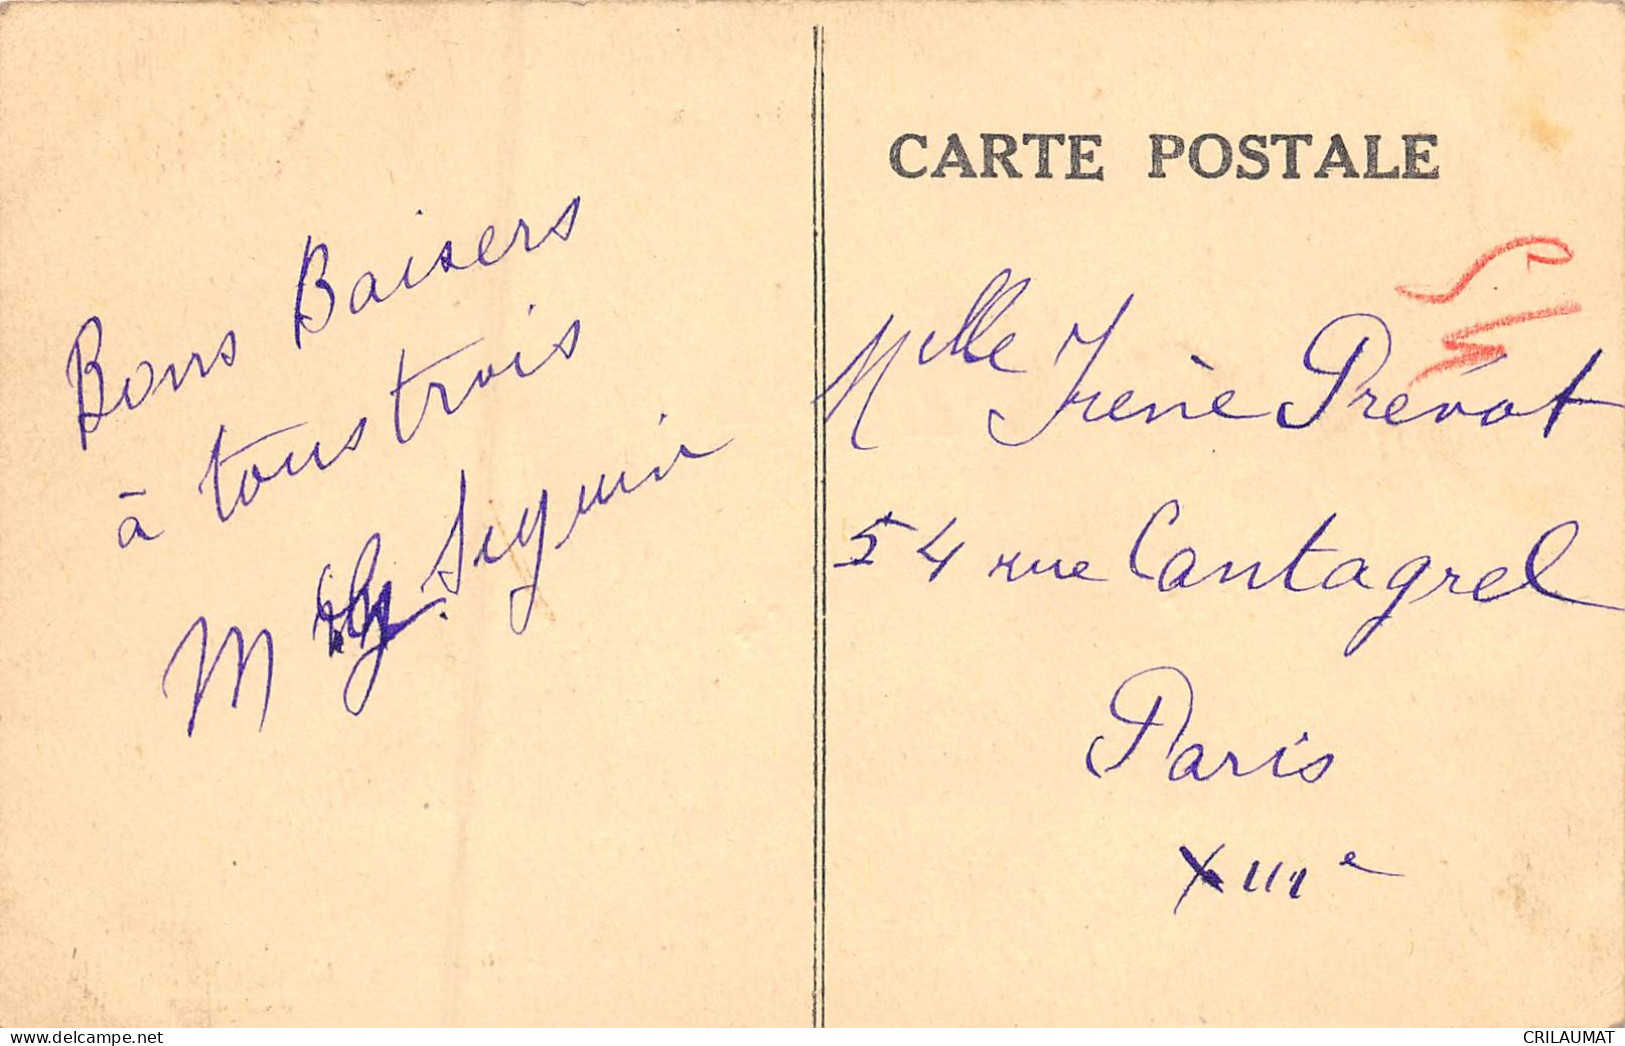 Bons Baisers
à tous trois
M Seguin
CARTE POSTALE
Mlle Irène Prévot
54 rue Cantagrel
Paris
XIIIe
delcampe.net
CRILAUMAT